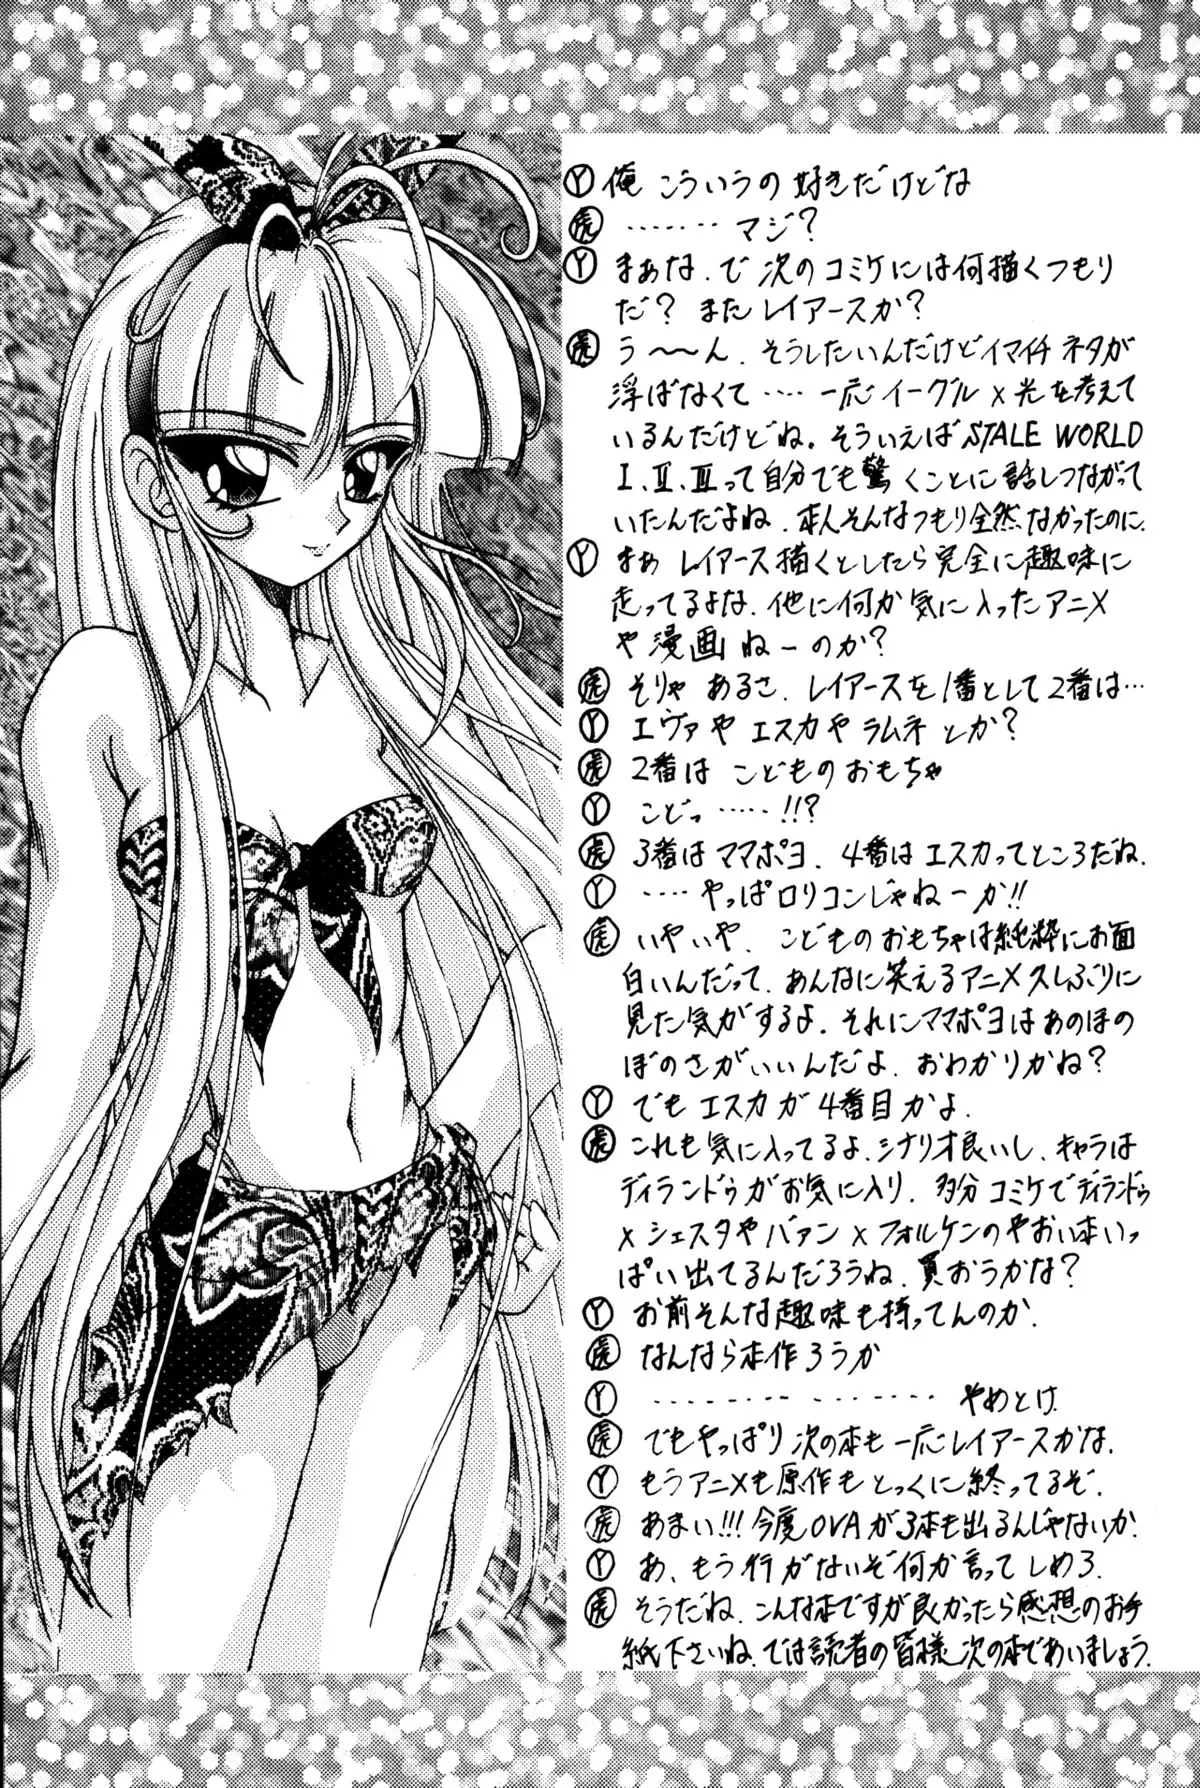 Ⓨ俺 こういうの好きだけどな
㊙虎 ……… マジ?
Ⓨ まぁな.で 次のコミケには何描くつもり
だ? またレイアースか?
虎 う〜〜ん.そうしたいんだけどイマイチネタが
浮ばなくて‥‥一応イーグル×光を考えて
いるんだけどね。そういえばSTALE WORLD
I.II.IIIって自分でも驚くことに話しつながって
いたんだよね.本人そんなつもり全然なかったのに.
Ⓨ まぁ レイアース描くとしたら完全に趣味に
走ってるよな.他に何か気に入ったアニメ
や漫画ねーのか?
虎 そりゃ あるさ.レイアースを1番として2番は…
Ⓨ エヴァや エスカや ラムネ とか?
虎 2番は こどものおもちゃ
Ⓨ こどっ‥‥‥!!?
虎 3番はママポヨ.4番はエスカってところだね.
Ⓨ ‥‥やっぱロリコンじゃねーか!!
虎 いやいや.こどものおもちゃは純粋にお面
白いんだって.あんなに笑えるアニメ久しぶりに
見た気がするよ.それにママポヨはあのほの
ぼのさがいいんだよ.おわかりかね?
Ⓨ でもエスカが4番目かよ.
虎 これも気に入ってるよ.シナリオ良いし.キャラは
ディランドゥがお気に入り.多分コミケでディランドゥ
×シェスタやバァン×フォルケンのやおい本いっ
ぱい出てるんだろうね.買おうかな?
Ⓨ お前そんな趣味も持ってんのか.
虎 なんなら本作ろうか
Ⓨ ‥‥‥‥‥‥‥‥ やめとけ
虎 でもやっぱり次の本も一応レイアースかな.
Ⓨ もうアニメも原作もとっくに終ってるぞ.
虎 あまい!!!今度OVAが3本も出るんじゃないか.
Ⓨ あ、もう行がないぞ何か言ってしめろ.
虎 そうだね.こんな本ですが良かったら感想のお手
紙下さいね.では読者の皆様次の本であいましょう.